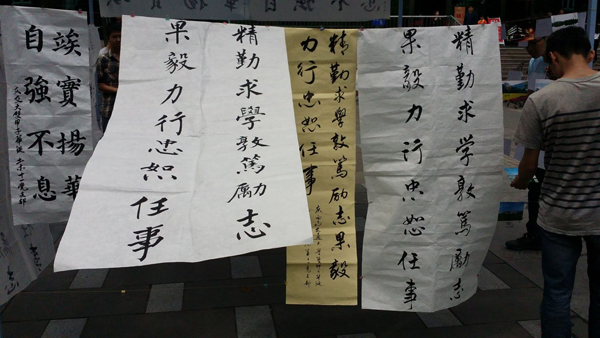 竢實揚華
自強不息
精勤求學敦篤励志
果毅力行忠恕任事
精勤求學敦篤励志果毅
力行忠恕任事
精勤求学敦篤勵志
果毅力行忠恕任事